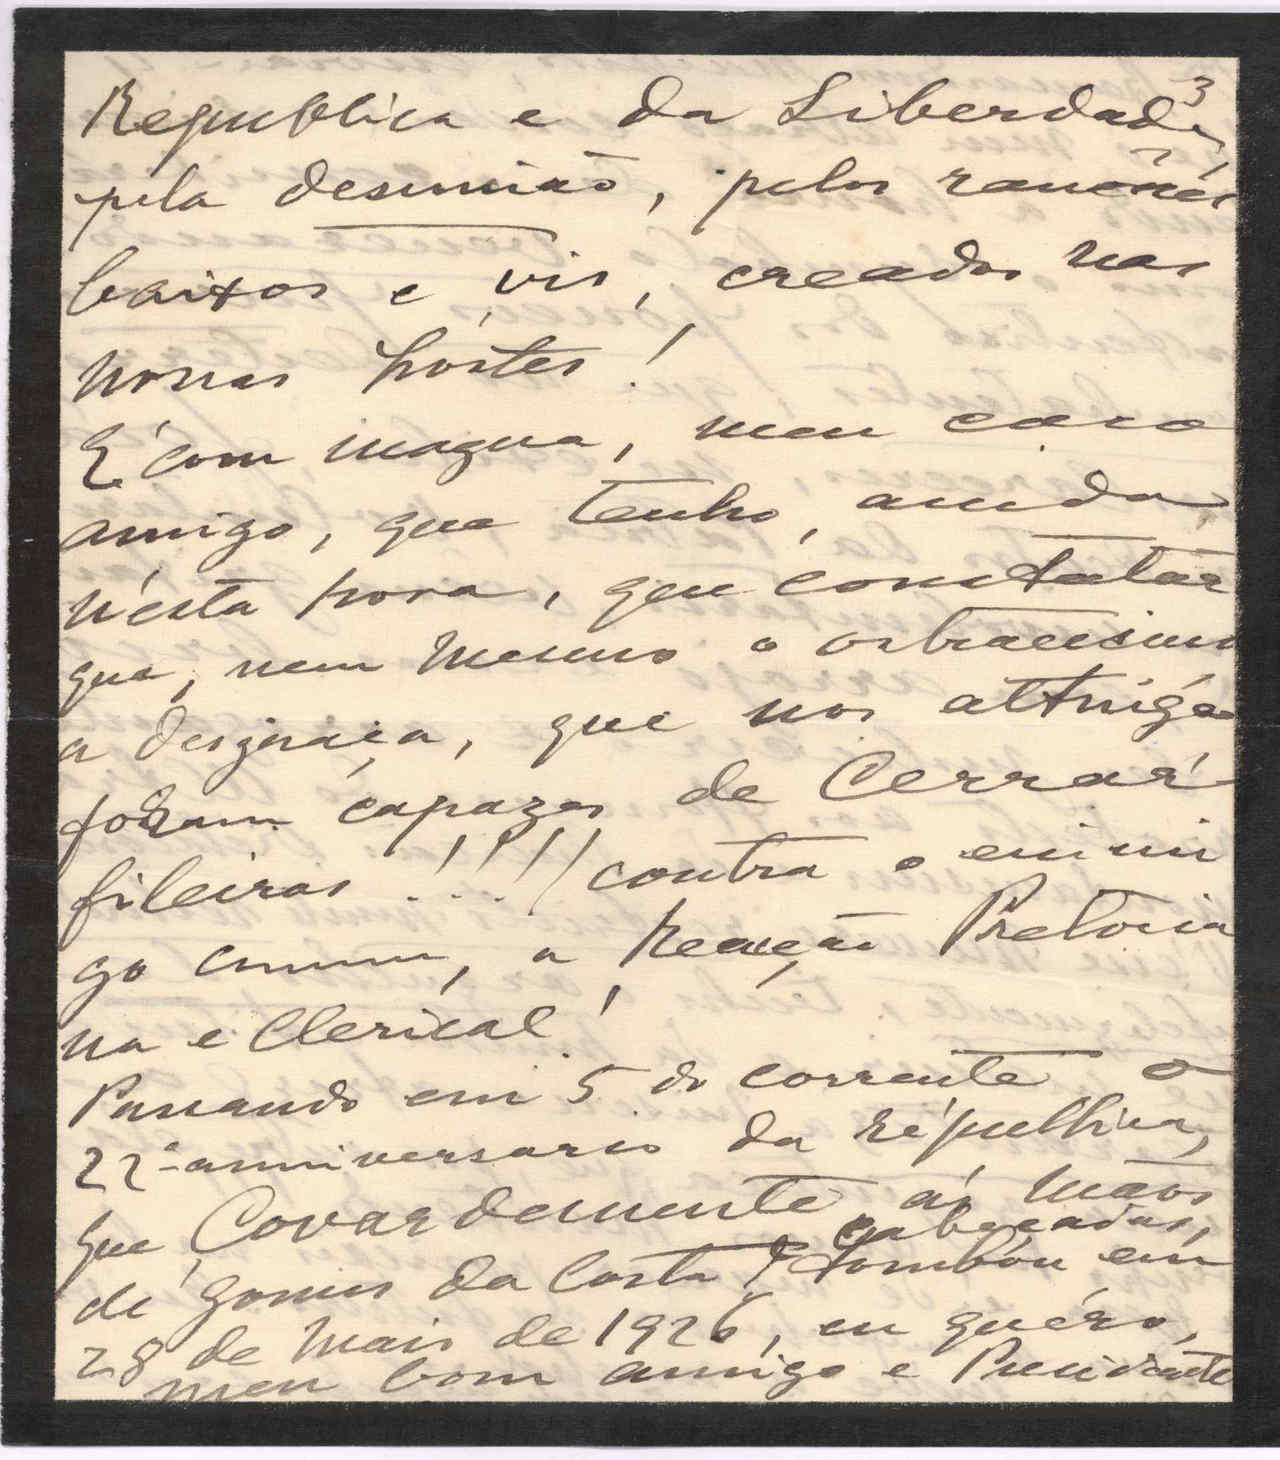 3
Republica e da Liberdade,
pela desunião, pelos rancôres
baixos e vis, creados nas
nossas hóstes!
É com magua, meu caro
amigo, que tenho, ainda
n'esta hora, que constatar
que, nem mesmo o ostracismo
a desgraça, que nos attinge
foram capazes de Cerrar
fileiras !!!! contra o inimi
go comum, a Reacção Pretoria
na e Clerical!
Passando em 5 do corrente o
22º anniversario da républica,
que, Covardemente ás mãos
de Gomes da Costa e Cabeçadas, tombou em
28 de Maio de 1926, eu quéro,
meu bom amigo e Presidente